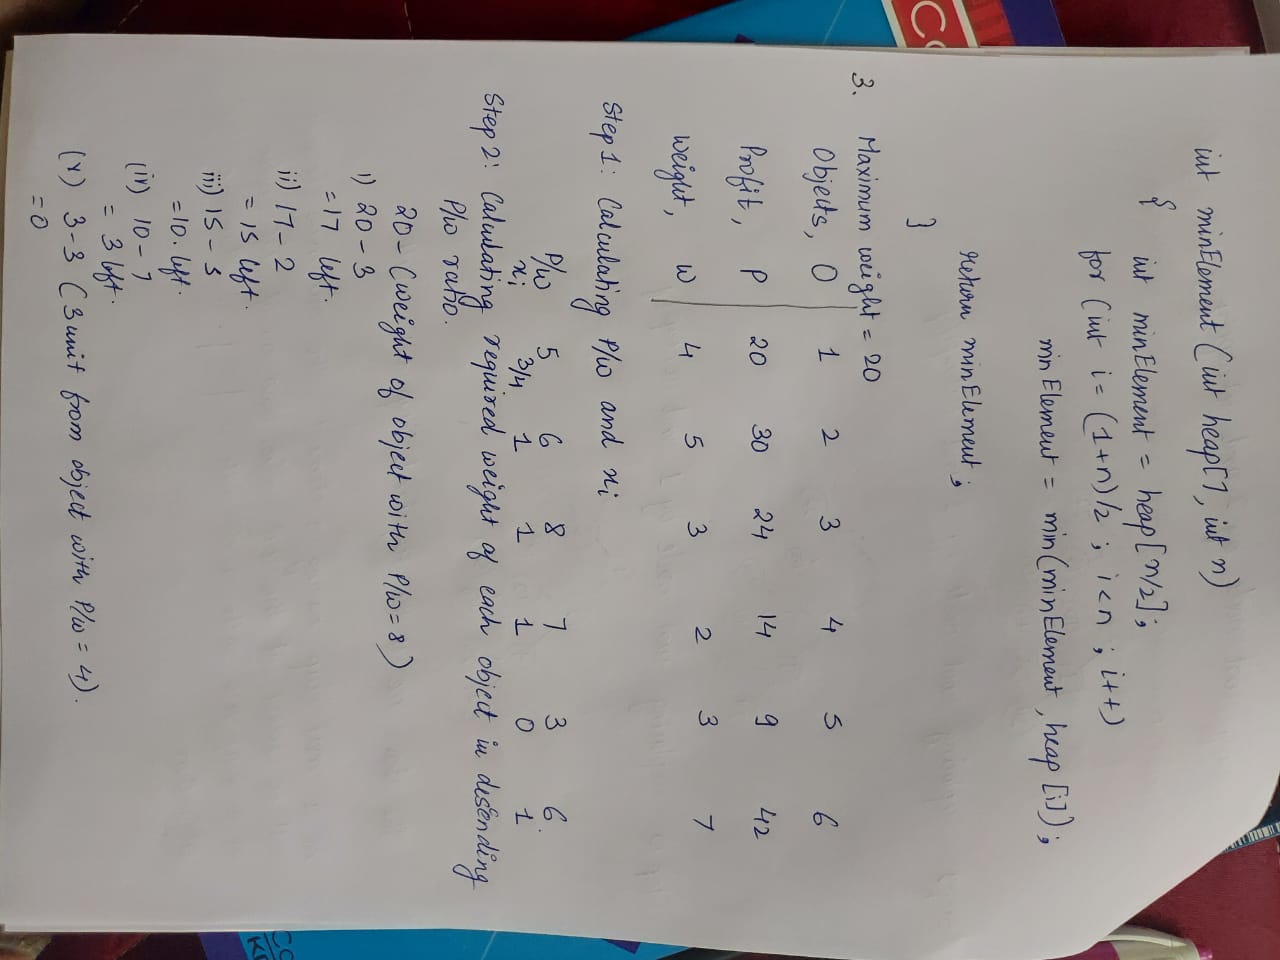 int minElement (int heap[], int n)
{ int minElement = heap[n/2];
for (int i = (1+n)/2 ; i<n ; i++)
min Element = min(minElement, heap [i]);
return minElement;
}
3. Maximum weight = 20
Objects, O 1 2 3 4 5 6
Profit, P 20 30 24 14 9 42
weight, w 4 5 3 2 3 7
Step 1: Calculating P/w and xi
P/w 5 6 8 7 3 6.
xi 3/4 1 1 1 0 1
Step 2: Calculating required weight of each object in desending
P/w ratio.
20 - (weight of object with P/w = 8)
i) 20 - 3
=17 left.
ii) 17 - 2
= 15 left.
iii) 15 - 5
=10. left.
(iv) 10 - 7
= 3 left.
(v) 3-3 (3 unit from object with P/w = 4).
=0
CO
CO
KR